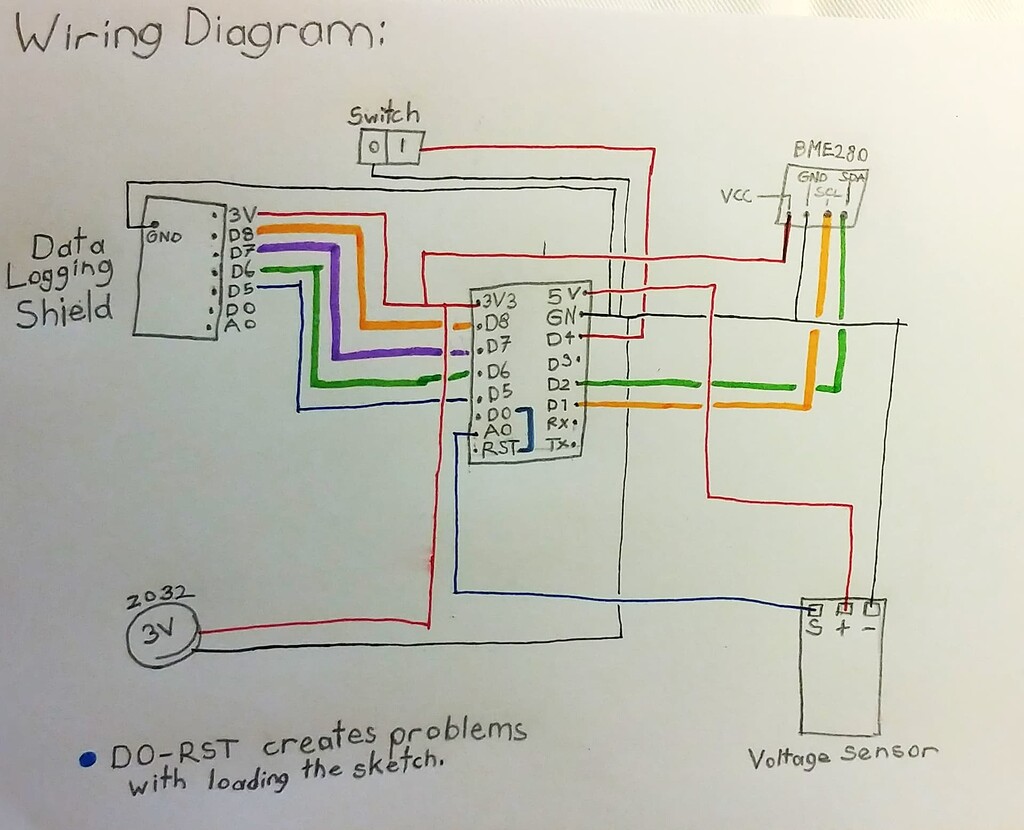 Wiring Diagram:
Switch
0 1
BME280
GND SDA
SCL
VCC
Data
Logging
Shield
GND
3V
D8
D7
D6
D5
D0
A0
3V3
D8
D7
D6
D5
D0
A0
RST
5V
GN
D4
D3
D2
D1
RX
TX
2032
3V
S + -
Voltage sensor
• DO-RST creates problems
with loading the sketch.